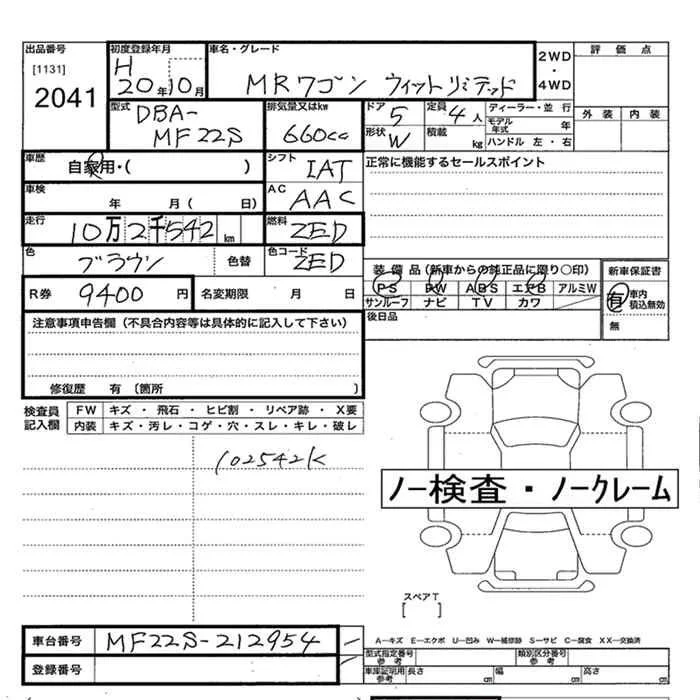 出品番号 初度登録年月 車名・グレード 2WD・4WD 評価点
[1131] H 20年10月 MRワゴン ウィットリミテッド
2041
型式 DBA-MF22S 排気量又はkw 660cc ドア 5 定員 4人 ディーラー・並行 外装 内装
形状 W 積載 kg モデル年式 年
ハンドル 左・右
車歴 自家用・( ) シフト IAT 正常に機能するセールスポイント
車検 年 月 ( 日) AC AAC
走行 10万2千542km 燃料
色 ブラウン 色替 色コード ZED
装備品(新車からの純正品に限り○印) 新車保証書
PS PW ABS エアB アルミW 有 車内積込無効
サンルーフ ナビ TV カワ
R券 9400円 名変期限 月 日 後日品 無
注意事項申告欄(不具合内容等は具体的に記入して下さい)
修復歴 有〔箇所 〕
検査員記入欄 FW キズ・飛石・ヒビ割・リペア跡・X要
内装 キズ・汚レ・コゲ・穴・スレ・キレ・破レ
102542K
ノー検査・ノークレーム
スペアT
[ ]
車台番号 MF22S-212954
A-キズ E-エクボ U-凹み W-補修跡 S-サビ C-腐食 XX-交換済
登録番号 型式指定番号 参考 類別区分番号 参考
車庫証明用 参考 長さ cm 幅 cm 高さ cm